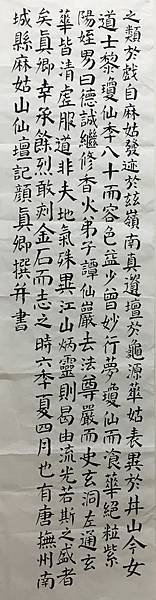 之類於戲自麻姑發迹於茲嶺南真遺壇於龜源華姑表異於井山今女
道士黎瓊仙年八十而容色益少曾妙行夢瓊仙而飡華絕粒紫
陽姪男曰德誠繼修香火弟子譚仙巖去法尊嚴而史玄洞左通玄
華皆清虛服道非夫地氣殊異江山炳靈則曷由流光若斯之盛者
矣真卿幸承餘烈敢刻金石而志之時六年夏四月也有唐撫州南
城縣麻姑山仙壇記顏真卿撰并書